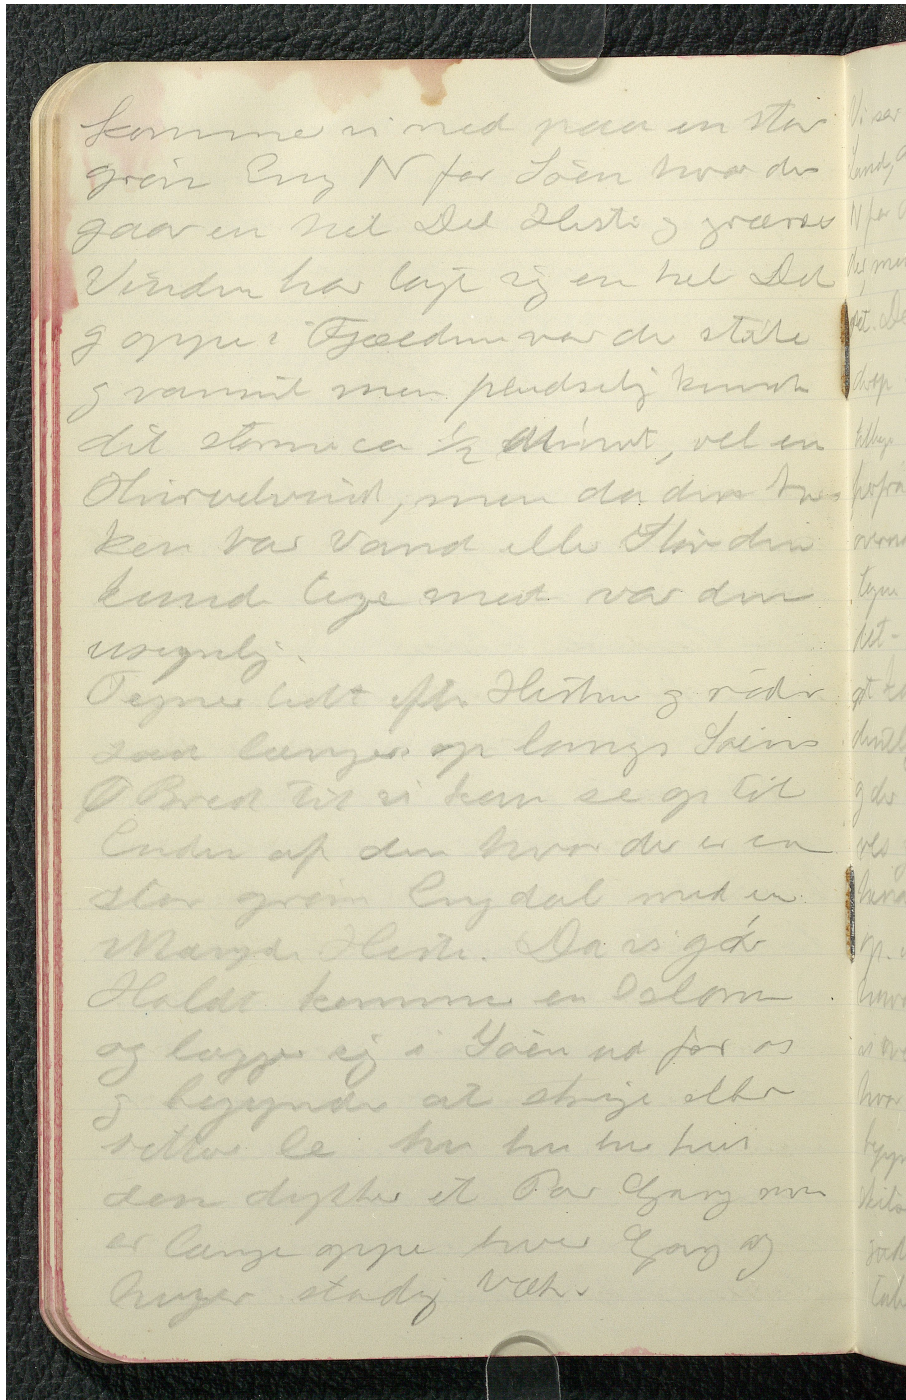 kommer vi ned paa en stor
grön Eng N for Söen hvor der
gaar en hel Del Heste og græsser
Vinden har lagt sig en hel Del
og oppe i Fjældene var der stille
og varmt men pludselig kunde
det storme ca ½ Minut, vel en
Hvirvelvind, men da der hver
ken var Vand eller Stöv den
kunde tage med var den
usynlig.
Tegner lidt efter Hestene og rider
saa længere op langs Söens
Ø Bred til vi kan se op til
Enden af den hvor der er en
stor grön Engdal med en
Mængde Heste. Da vi gör
Holdt kommer en Islom
og lægger sig i Söen ud for os
og begynder at skrige eller
rettere le hu hu hu hui
den dykker et Par Gang men
er længe oppe hver Gang og
huger stadig væk.